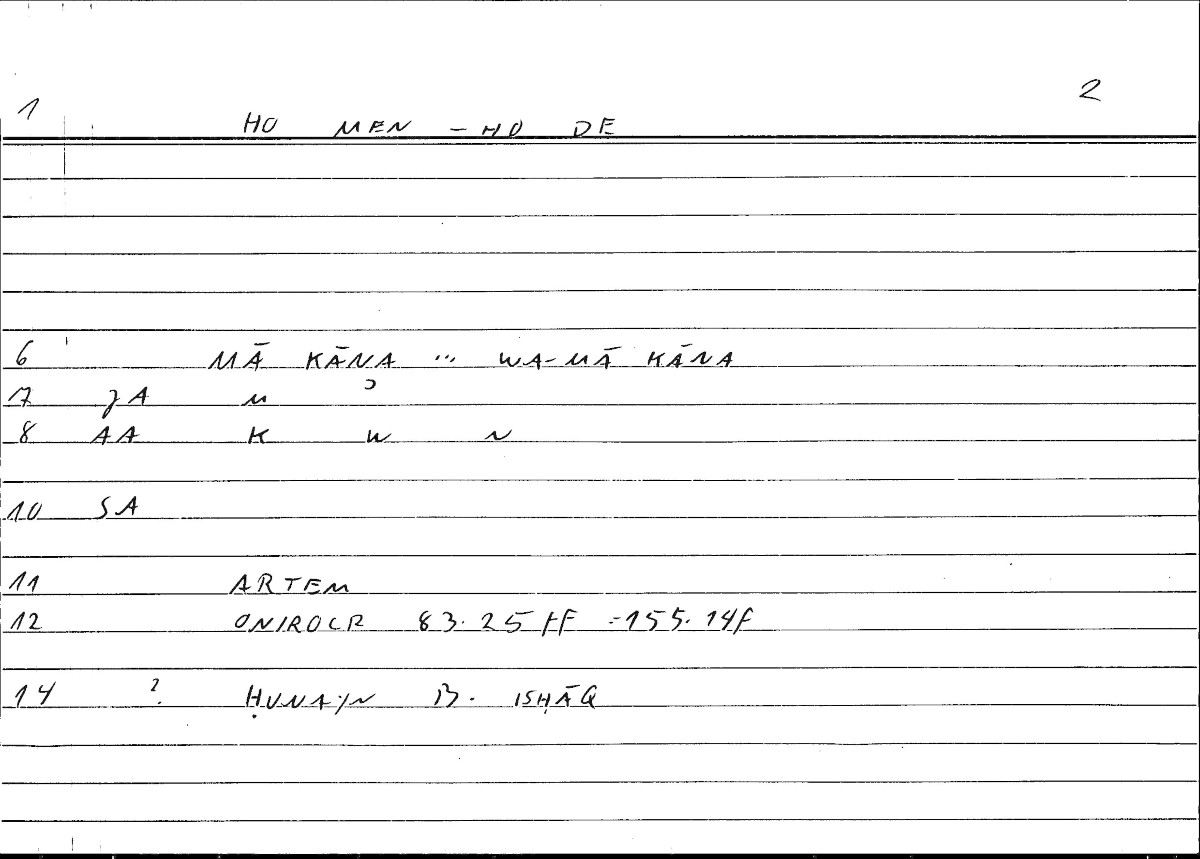 2
1 HO MEN - HO DE
6 MĀ KĀNA ... WA-MĀ KĀNA
7 JA M ʾ
8 AA K W N
10 SA
11 ARTEM
12 ONIROCR 83.25FF =155.14F
14 ? ḤUNAYN B. ISḤĀQ